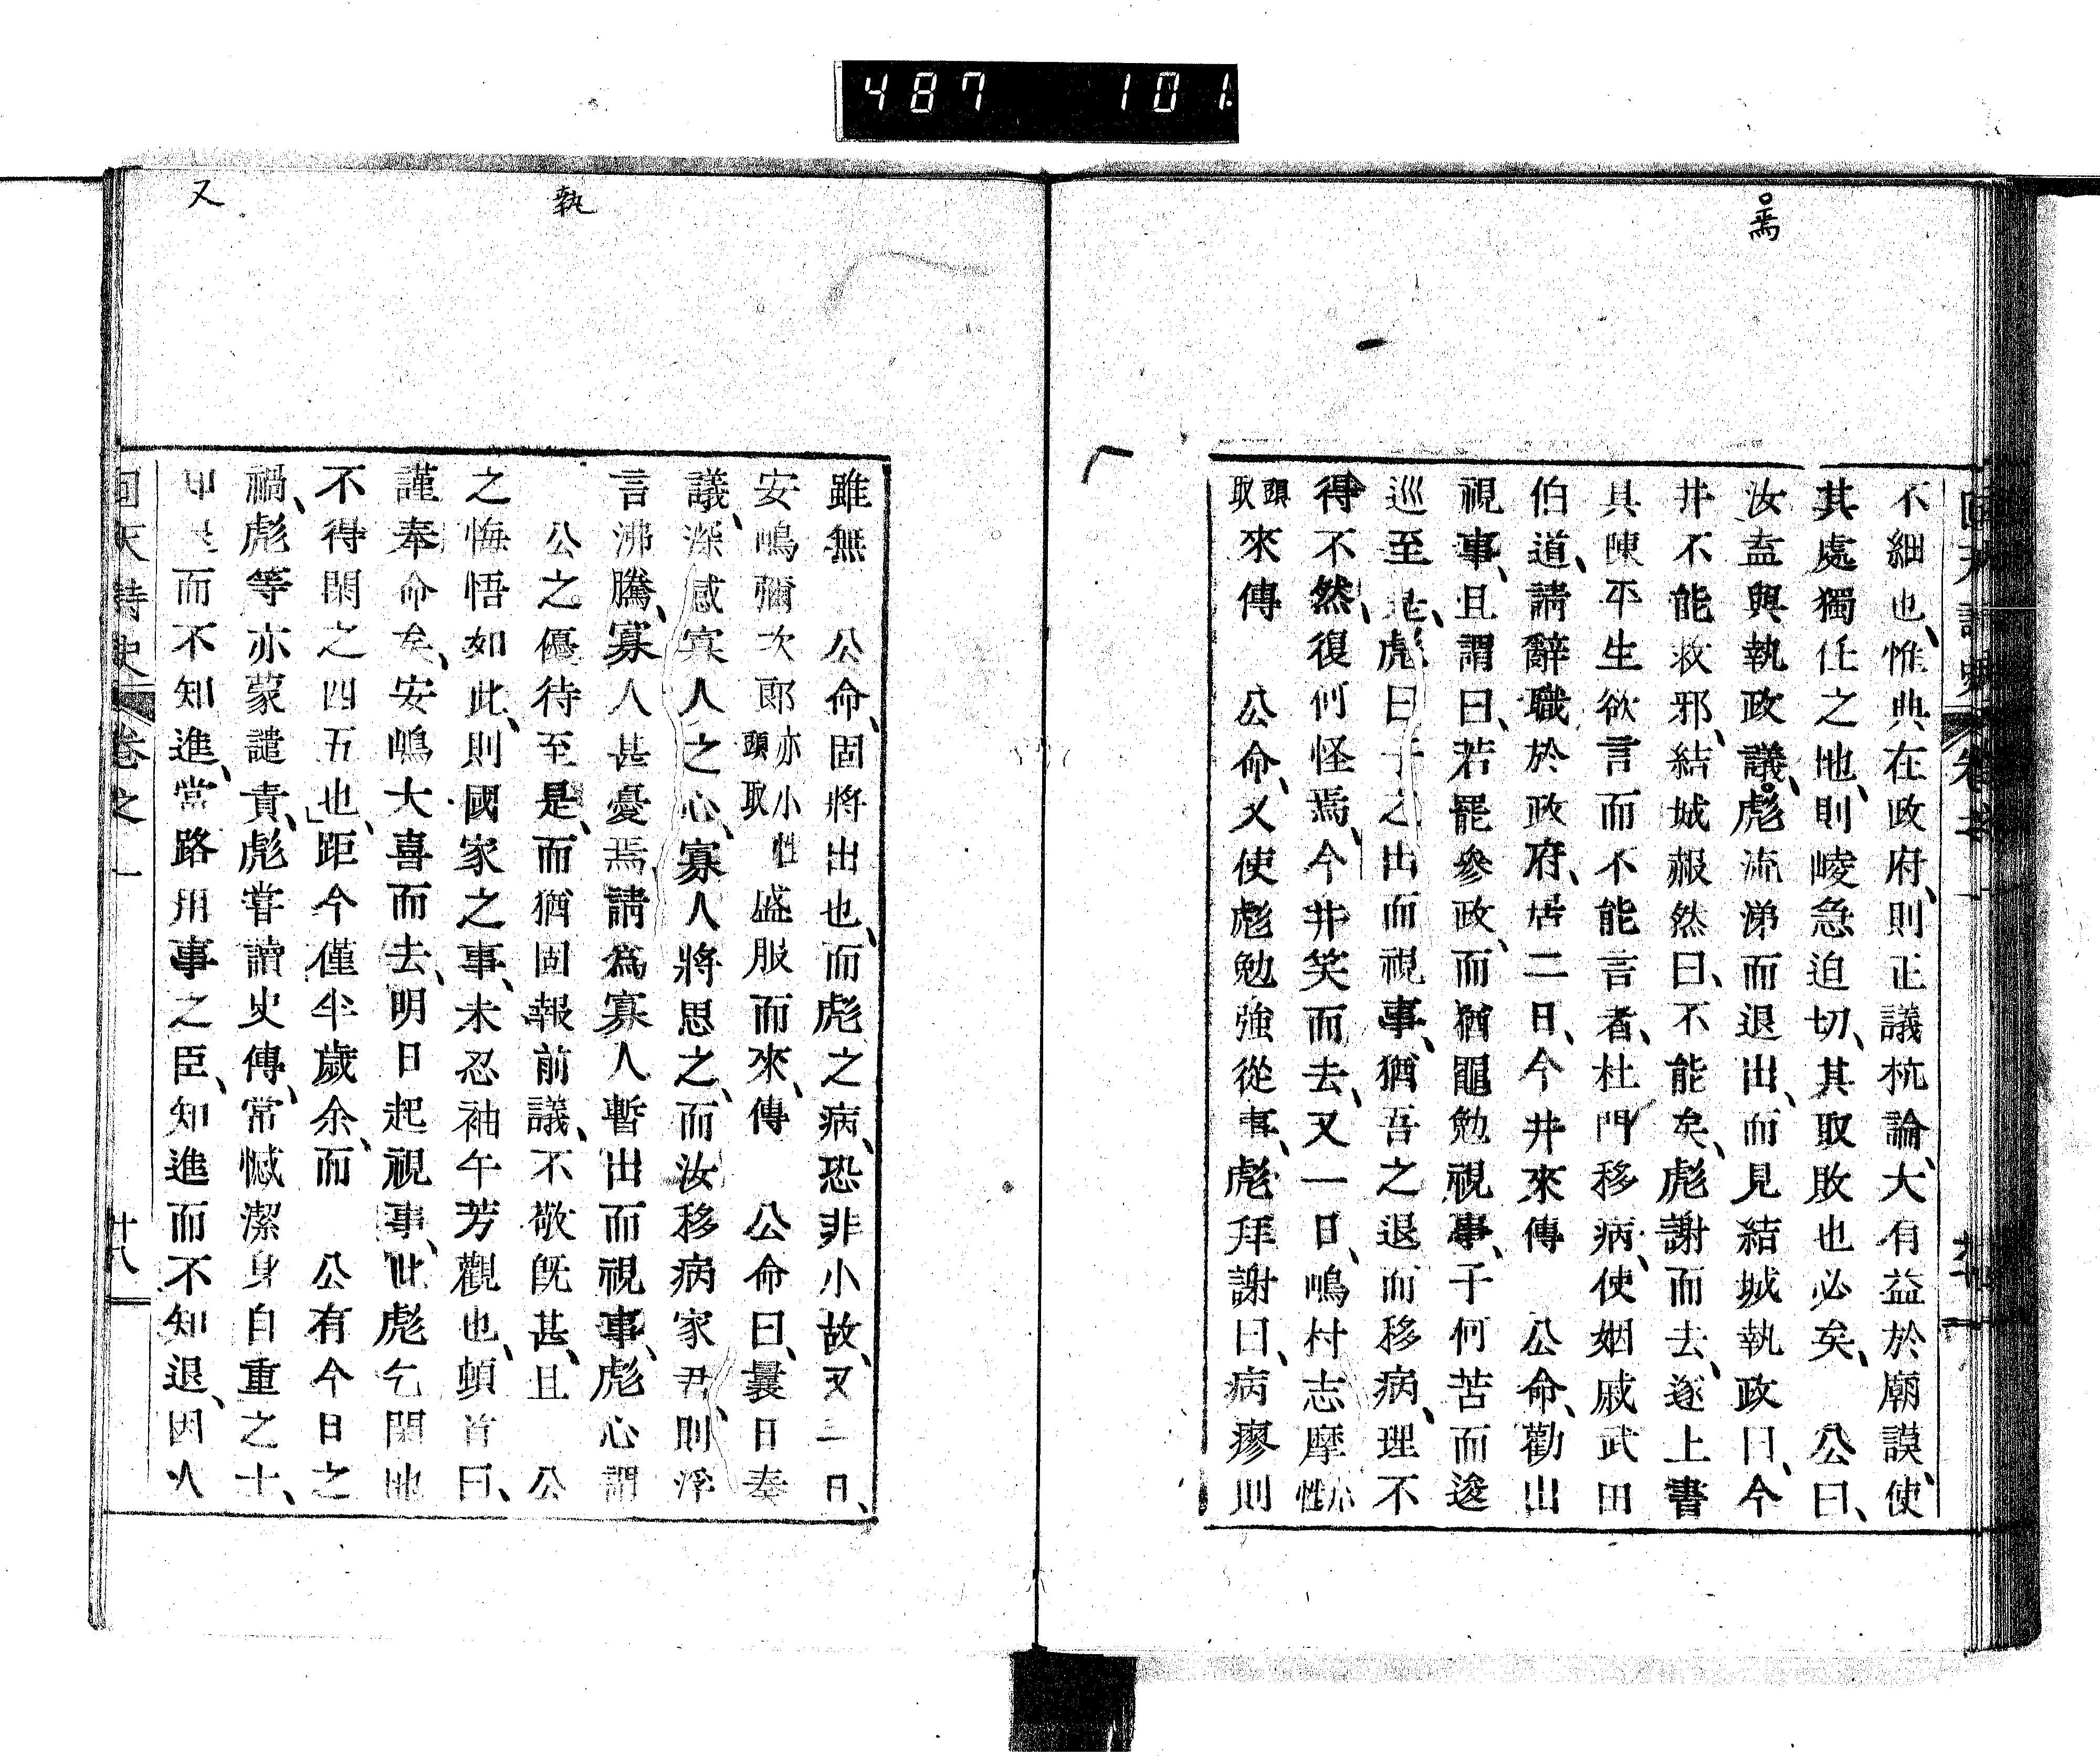 487 101
焉
不細也、惟典在政府、則正議杭論、大有益於廟謨、使
其處獨任之地、則崚急迫切、其取敗也必矣、 公曰、
汝盍與執政議、彪流涕而退出、而見結城執政曰、今
井不能救邪、結城赧然曰、不能矣、彪謝而去、遂上書
具陳平生欲言而不能言者、杜門移病、使姻戚武田
伯道、請辭職於政府、居二日、今井來傳 公命、勸出
視事、且謂曰、若罷參政、而猶黽勉視事、子何苦而逡
巡至是、彪曰、子之出而視事、猶吾之退而移病、理不
得不然、復何怪焉、今井笑而去、又一日、嶋村志摩小性
頭取來傳 公命、又使彪勉強從事、彪拜謝曰、病瘳則
執
又
雖無 公命、固將出也、而彪之病、恐非小故、又三日、
安嶋彌次郎亦小性頭取盛服而來、傳 公命曰、曩日奏
議、深感寡人之心、寡人將思之、而汝移病家尹、則浮
言沸騰、寡人甚憂焉、請爲寡人暫出而視事、彪心謂
公之優待至是、而猶固報前議、不敬既甚、且 公
之悔悟如此、則國家之事、未忍袖午芳觀也、頓首曰、
謹奉命矣、安嶋大喜而去、明日起視事、此彪乞閑地
不得閑之四五也、距今僅半歲余、而 公有今日之
禍、彪等亦蒙譴責、彪甞讀史傳、常憾潔身自重之士、
知退而不知進、當路用事之臣、知進而不知退、因以
回天詩史 卷之一 廿八